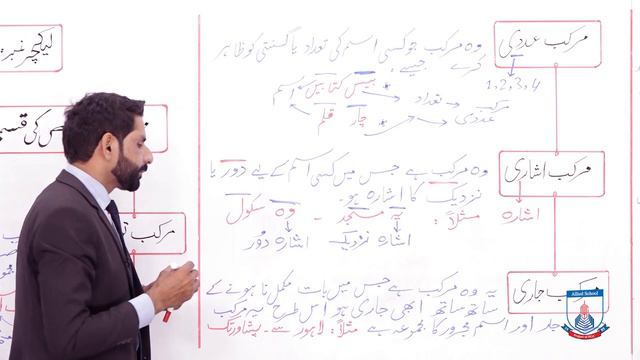 مرکب عددی
وہ مرکب جو کسی اسم کی تعداد یا گنتی کو ظاہر
کرے۔ جیسے:
1,2,3,4
بیس کتابیں
اسم
تعداد
مرکب
عددی
چار قلم
مرکب اشاری
وہ مرکب ہے جس میں کسی اسم کے لیے دور یا
نزدیک کا اشارہ ہو۔
اشارہ
مثلاً: یہ مسجد ۔ وہ سکول
اشارہ نزدیک
اشارہ دُور
مرکب جاری
یہ وہ مرکب ہے جس میں بات مکمل نا ہونے کے
ساتھ ساتھ ابھی جاری ہو اس طرح یہ مرکب
جار اور اسم مجرور کا مجموعہ ہے مثلاً: لاہور سے ۔ پشاور تک
لیکچر نمبر
کی قسمیں
مرکب
Allied School